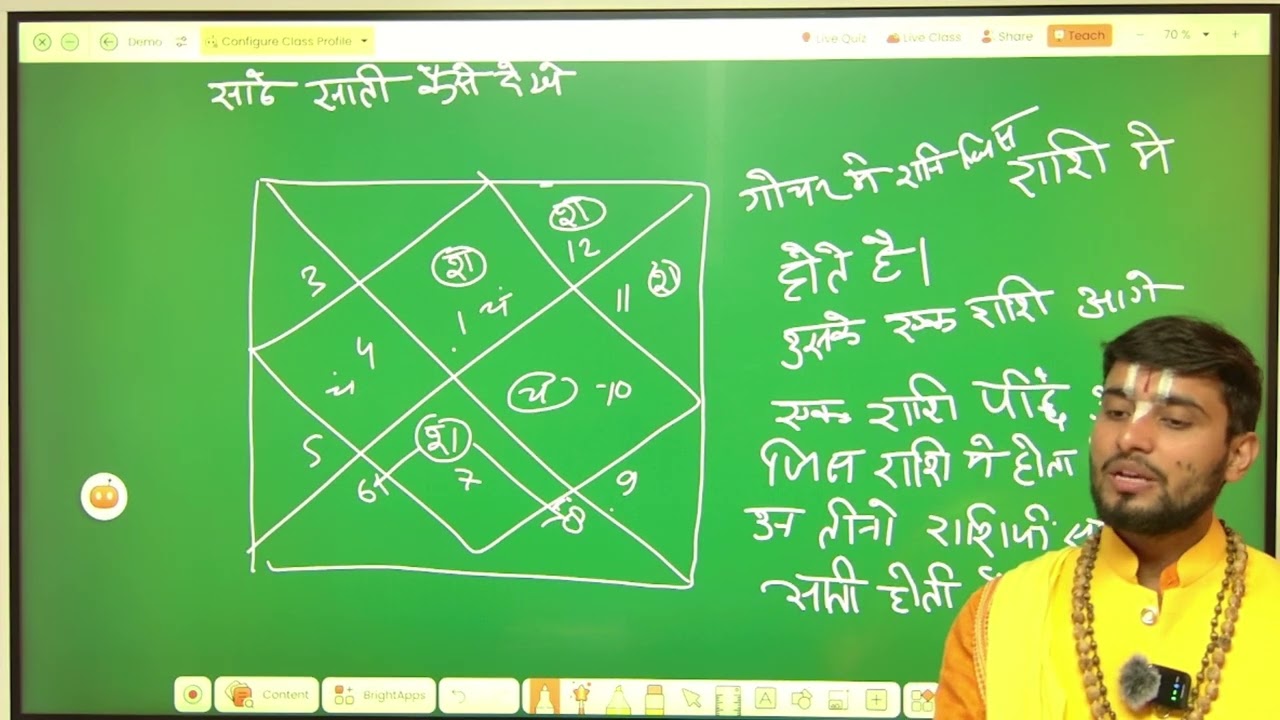 Demo
Configure Class Profile
Live Quiz
Live Class
Share
Teach
70 %
साढे साती कैसे देखे
गोचर मे शनि जिस राशि मे
होते है।
उसके एक राशि आगे
एक राशि पीछे
जिस राशि मे होता
उन तीनो राशियों
साती होती
3
शा
1 चं
शा
12
11 शा
4
चं
चं 10
5
6
शा
7
8
9
Content
BrightApps